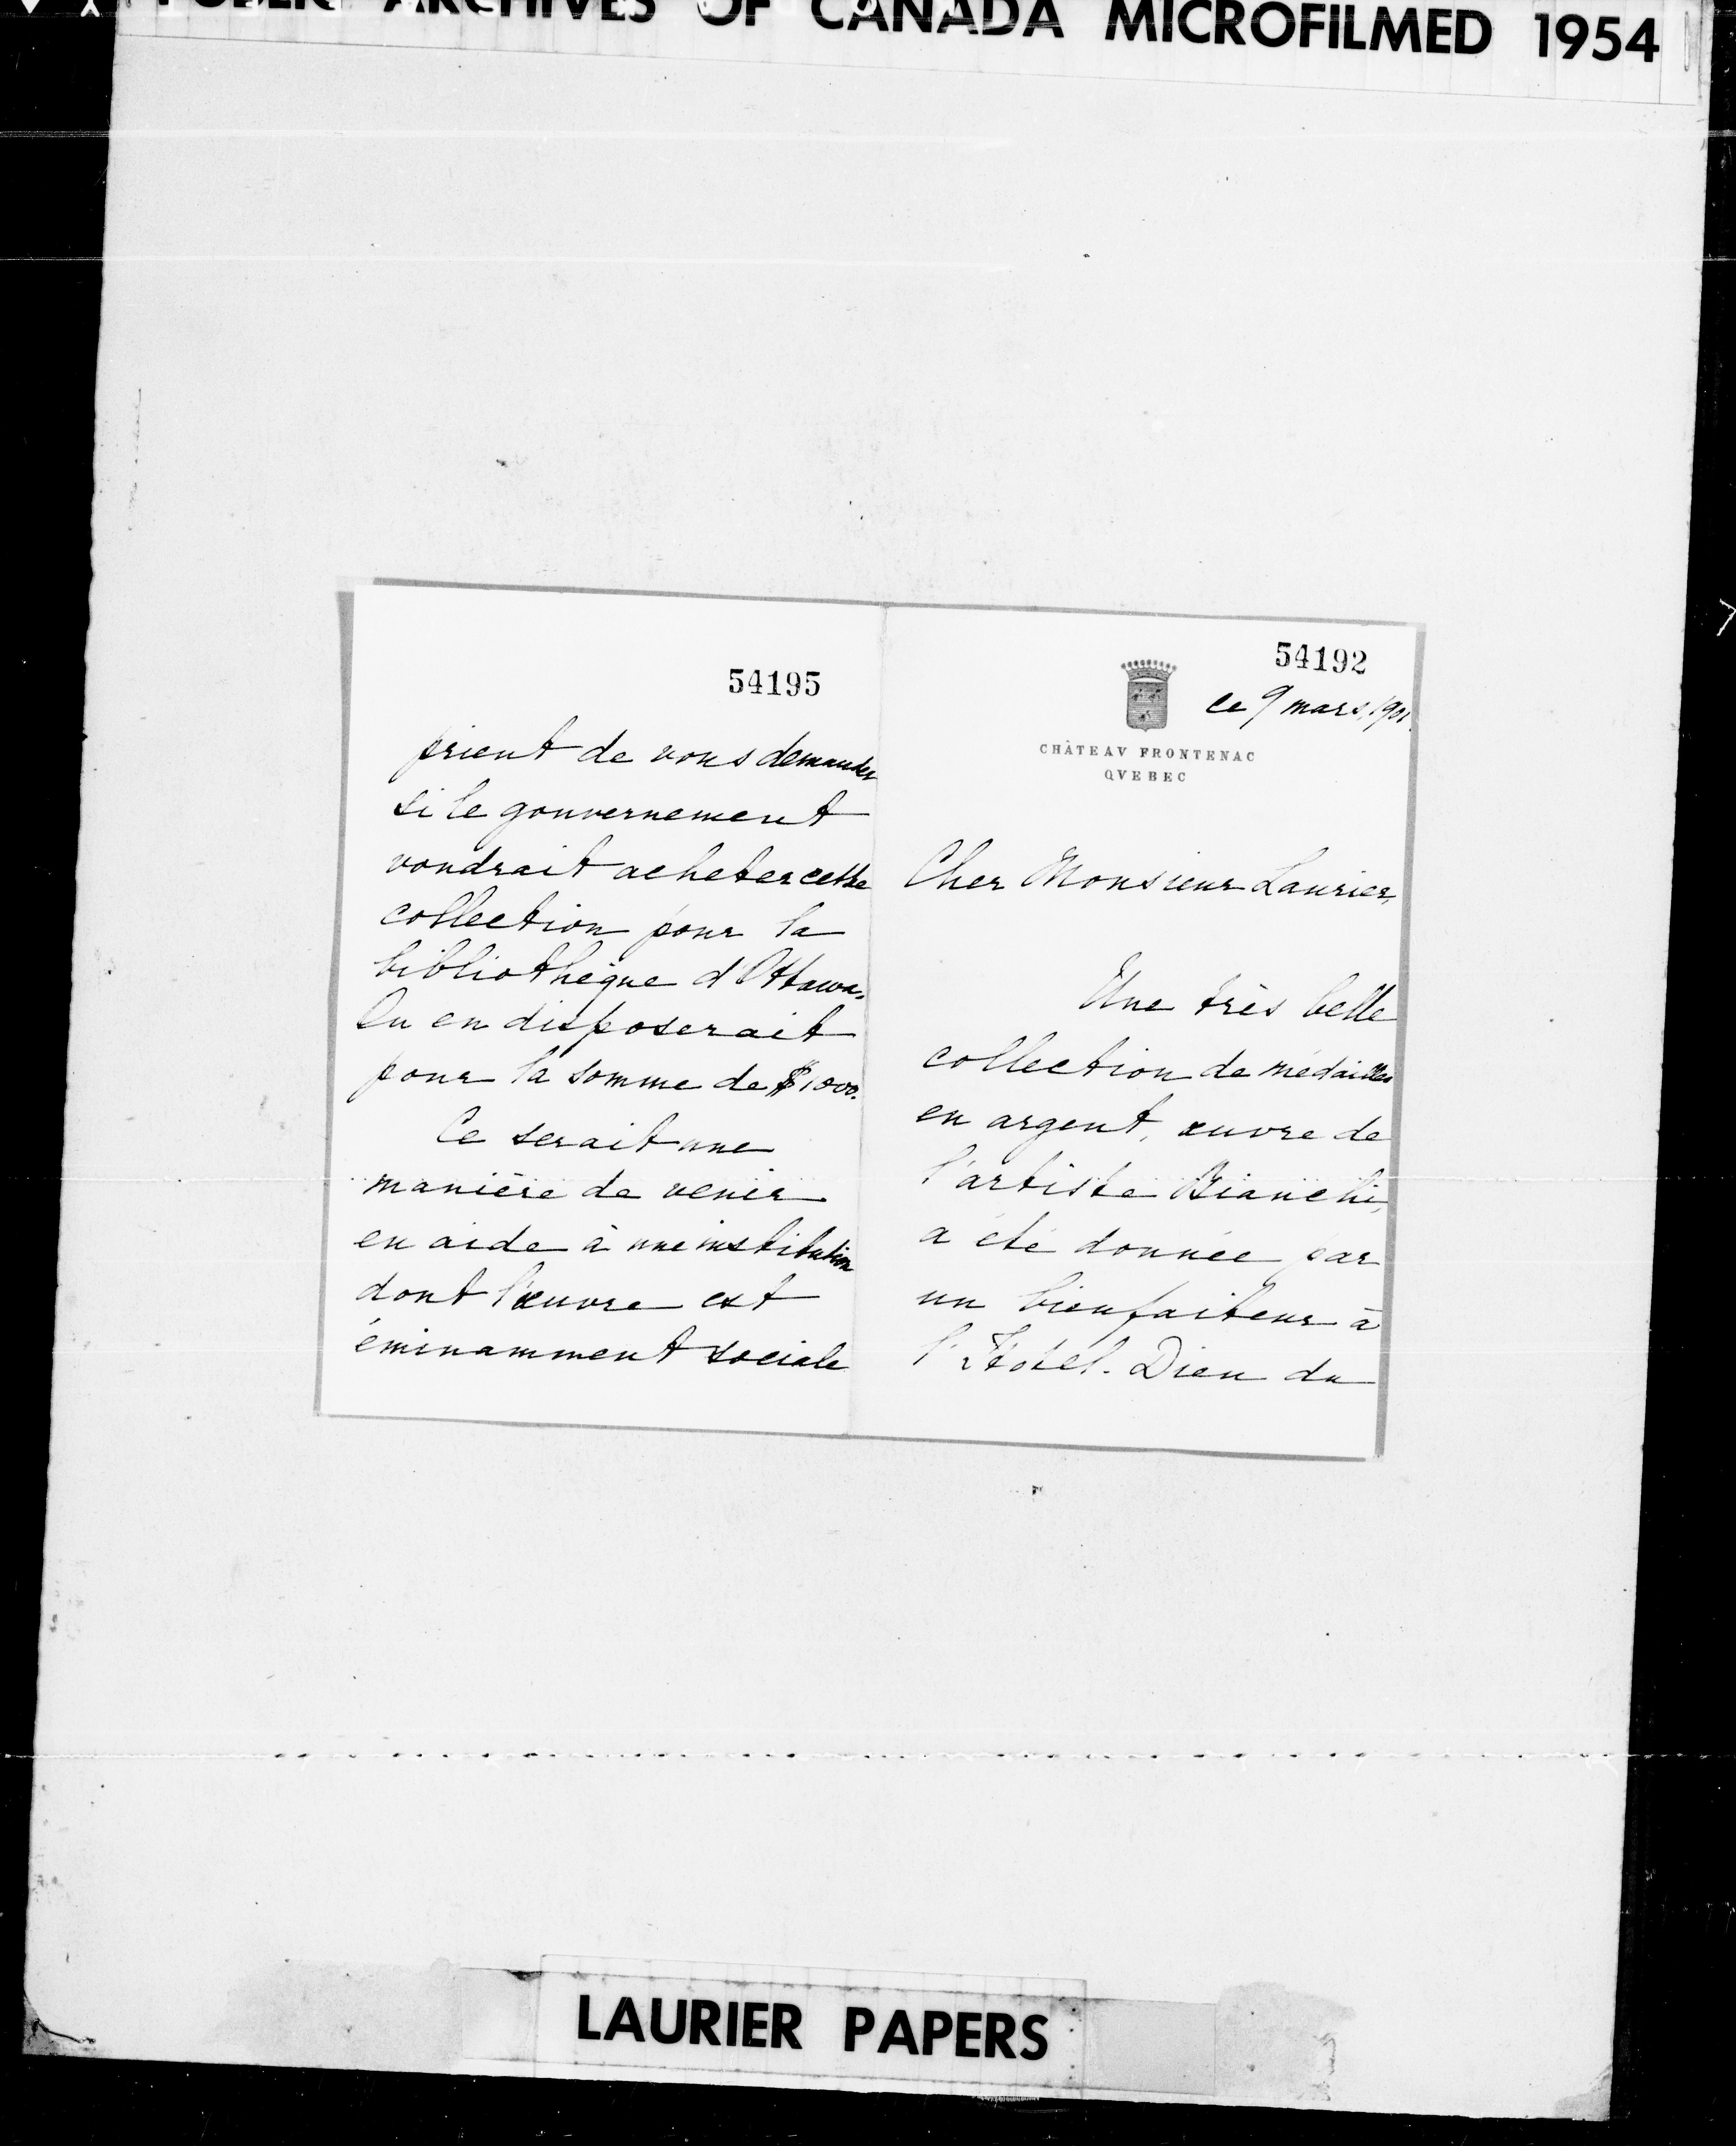 PUBLIC ARCHIVES OF CANADA MICROFILMED 1954
54195
prient de vous demander
si le gouvernement
voudrait acheter cette
collection pour la
bibliothèque d'Ottawa.
On en disposerait
pour la somme de $1000.
Ce serait une
manière de venir
en aide à une institution
dont l'œuvre est
éminamment sociale
54192
ce 9 mars, 1901.
CHÂTEAV FRONTENAC
QVEBEC
Cher Monsieur Laurier,
Une très belle
collection de médailles
en argent, œuvre de
l'artiste Bianchi,
a été donnée par
un bienfaiteur à
l'Hôtel-Dieu du
LAURIER PAPERS